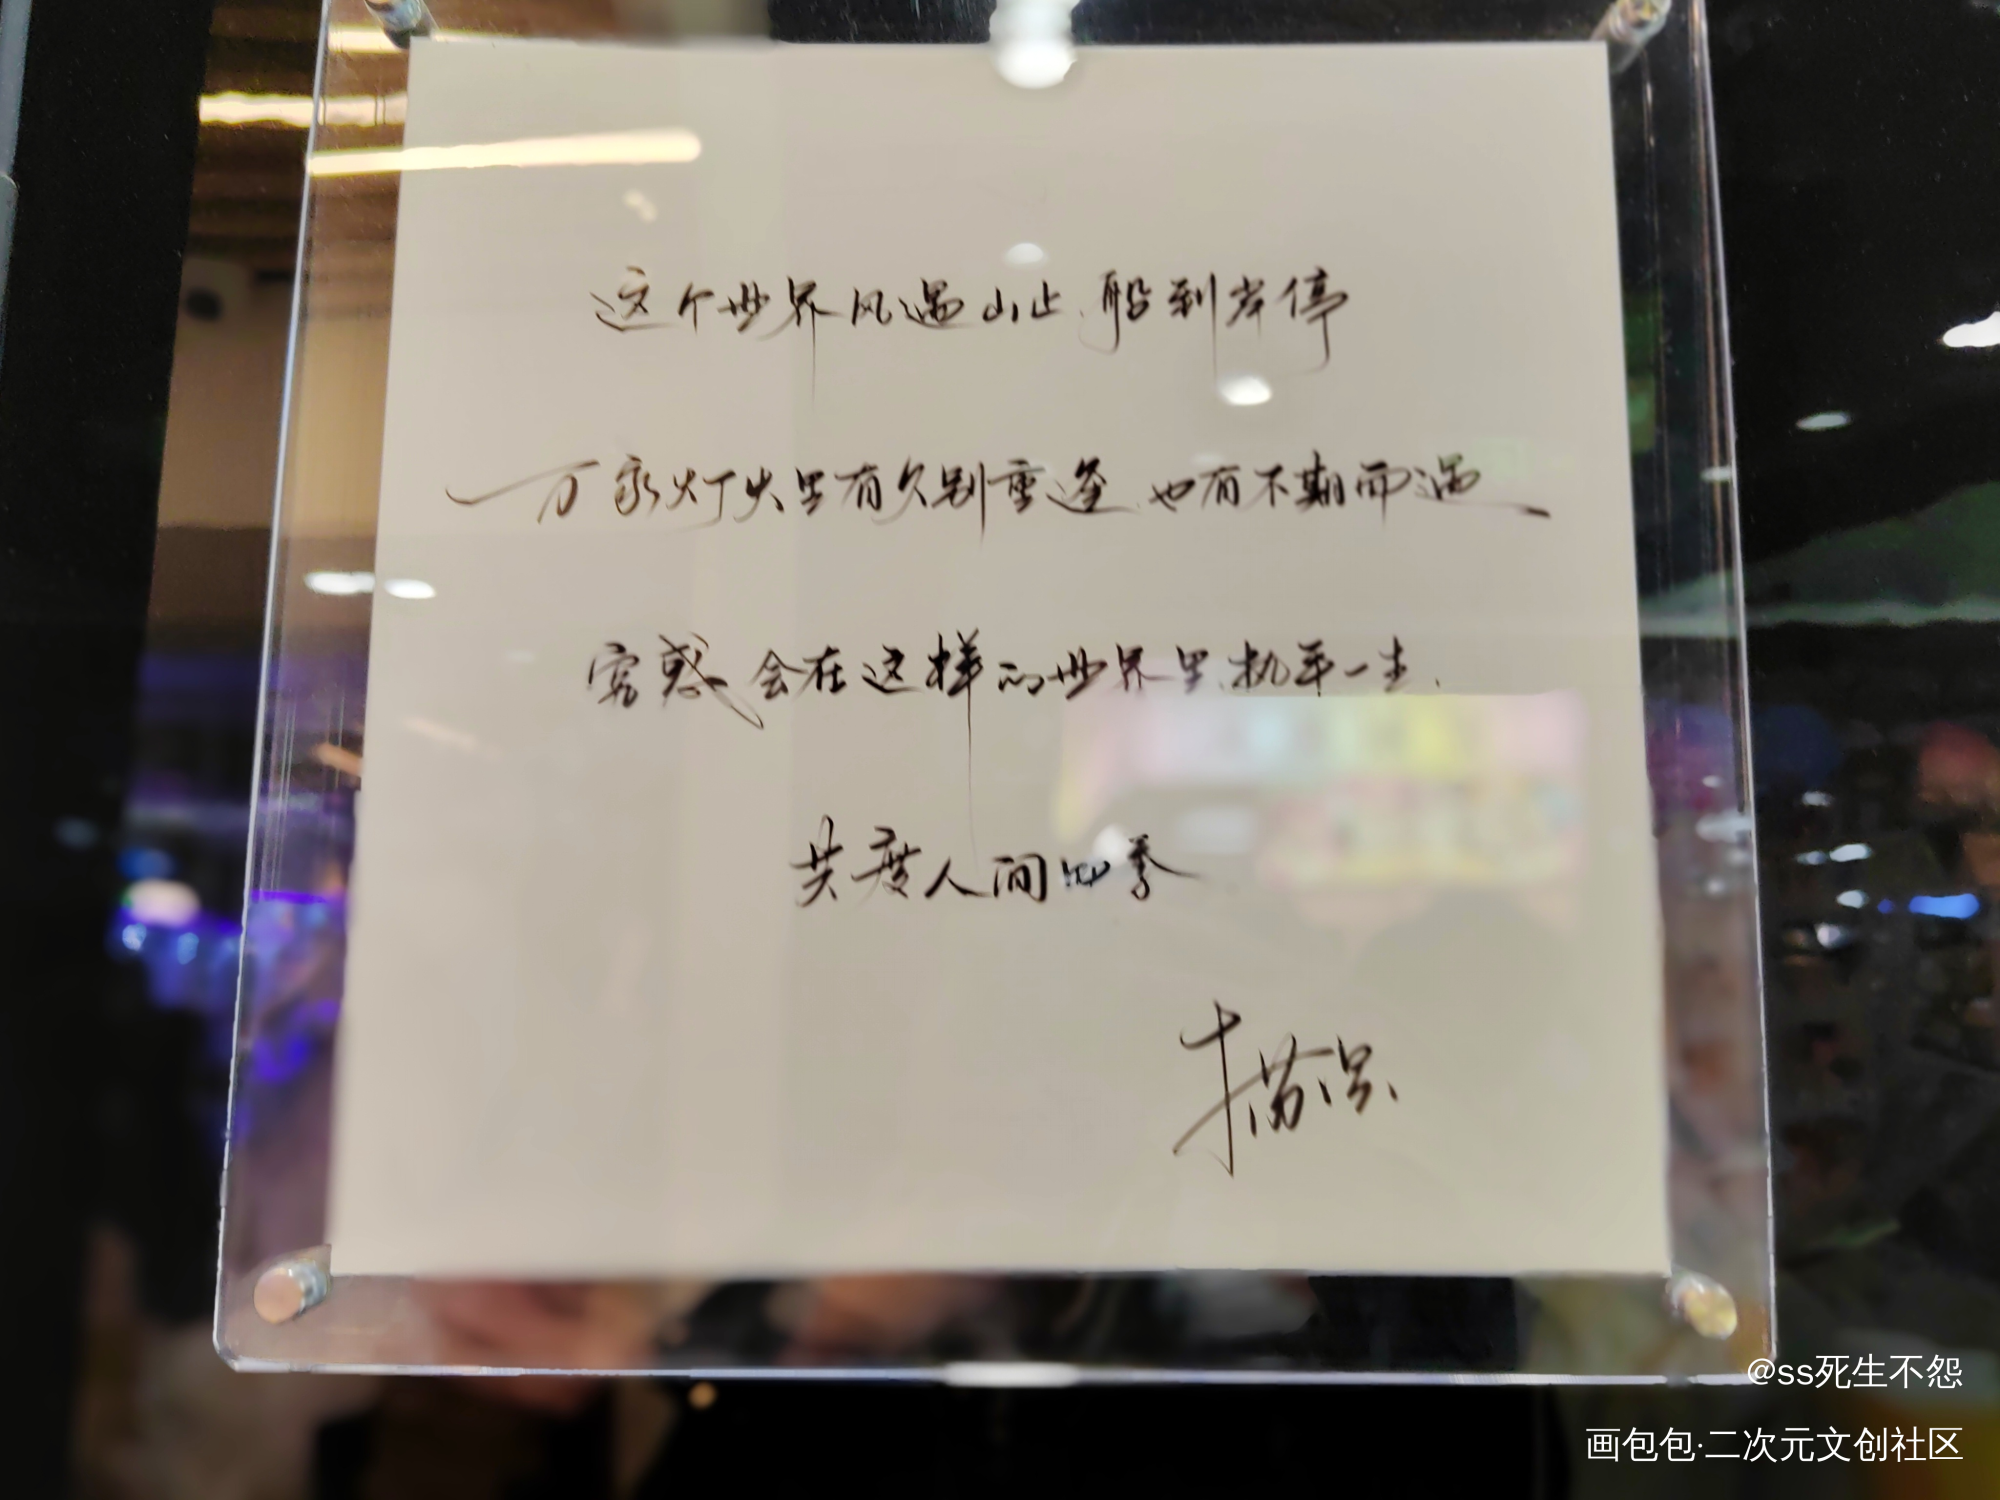 这个世界风遇山止，船到岸停
万家灯火里有久别重逢，也有不期而遇
窃惑会在这样的世界里，执手一生．
共度人间四季
@ss死生不怨
画包包·二次元文创社区